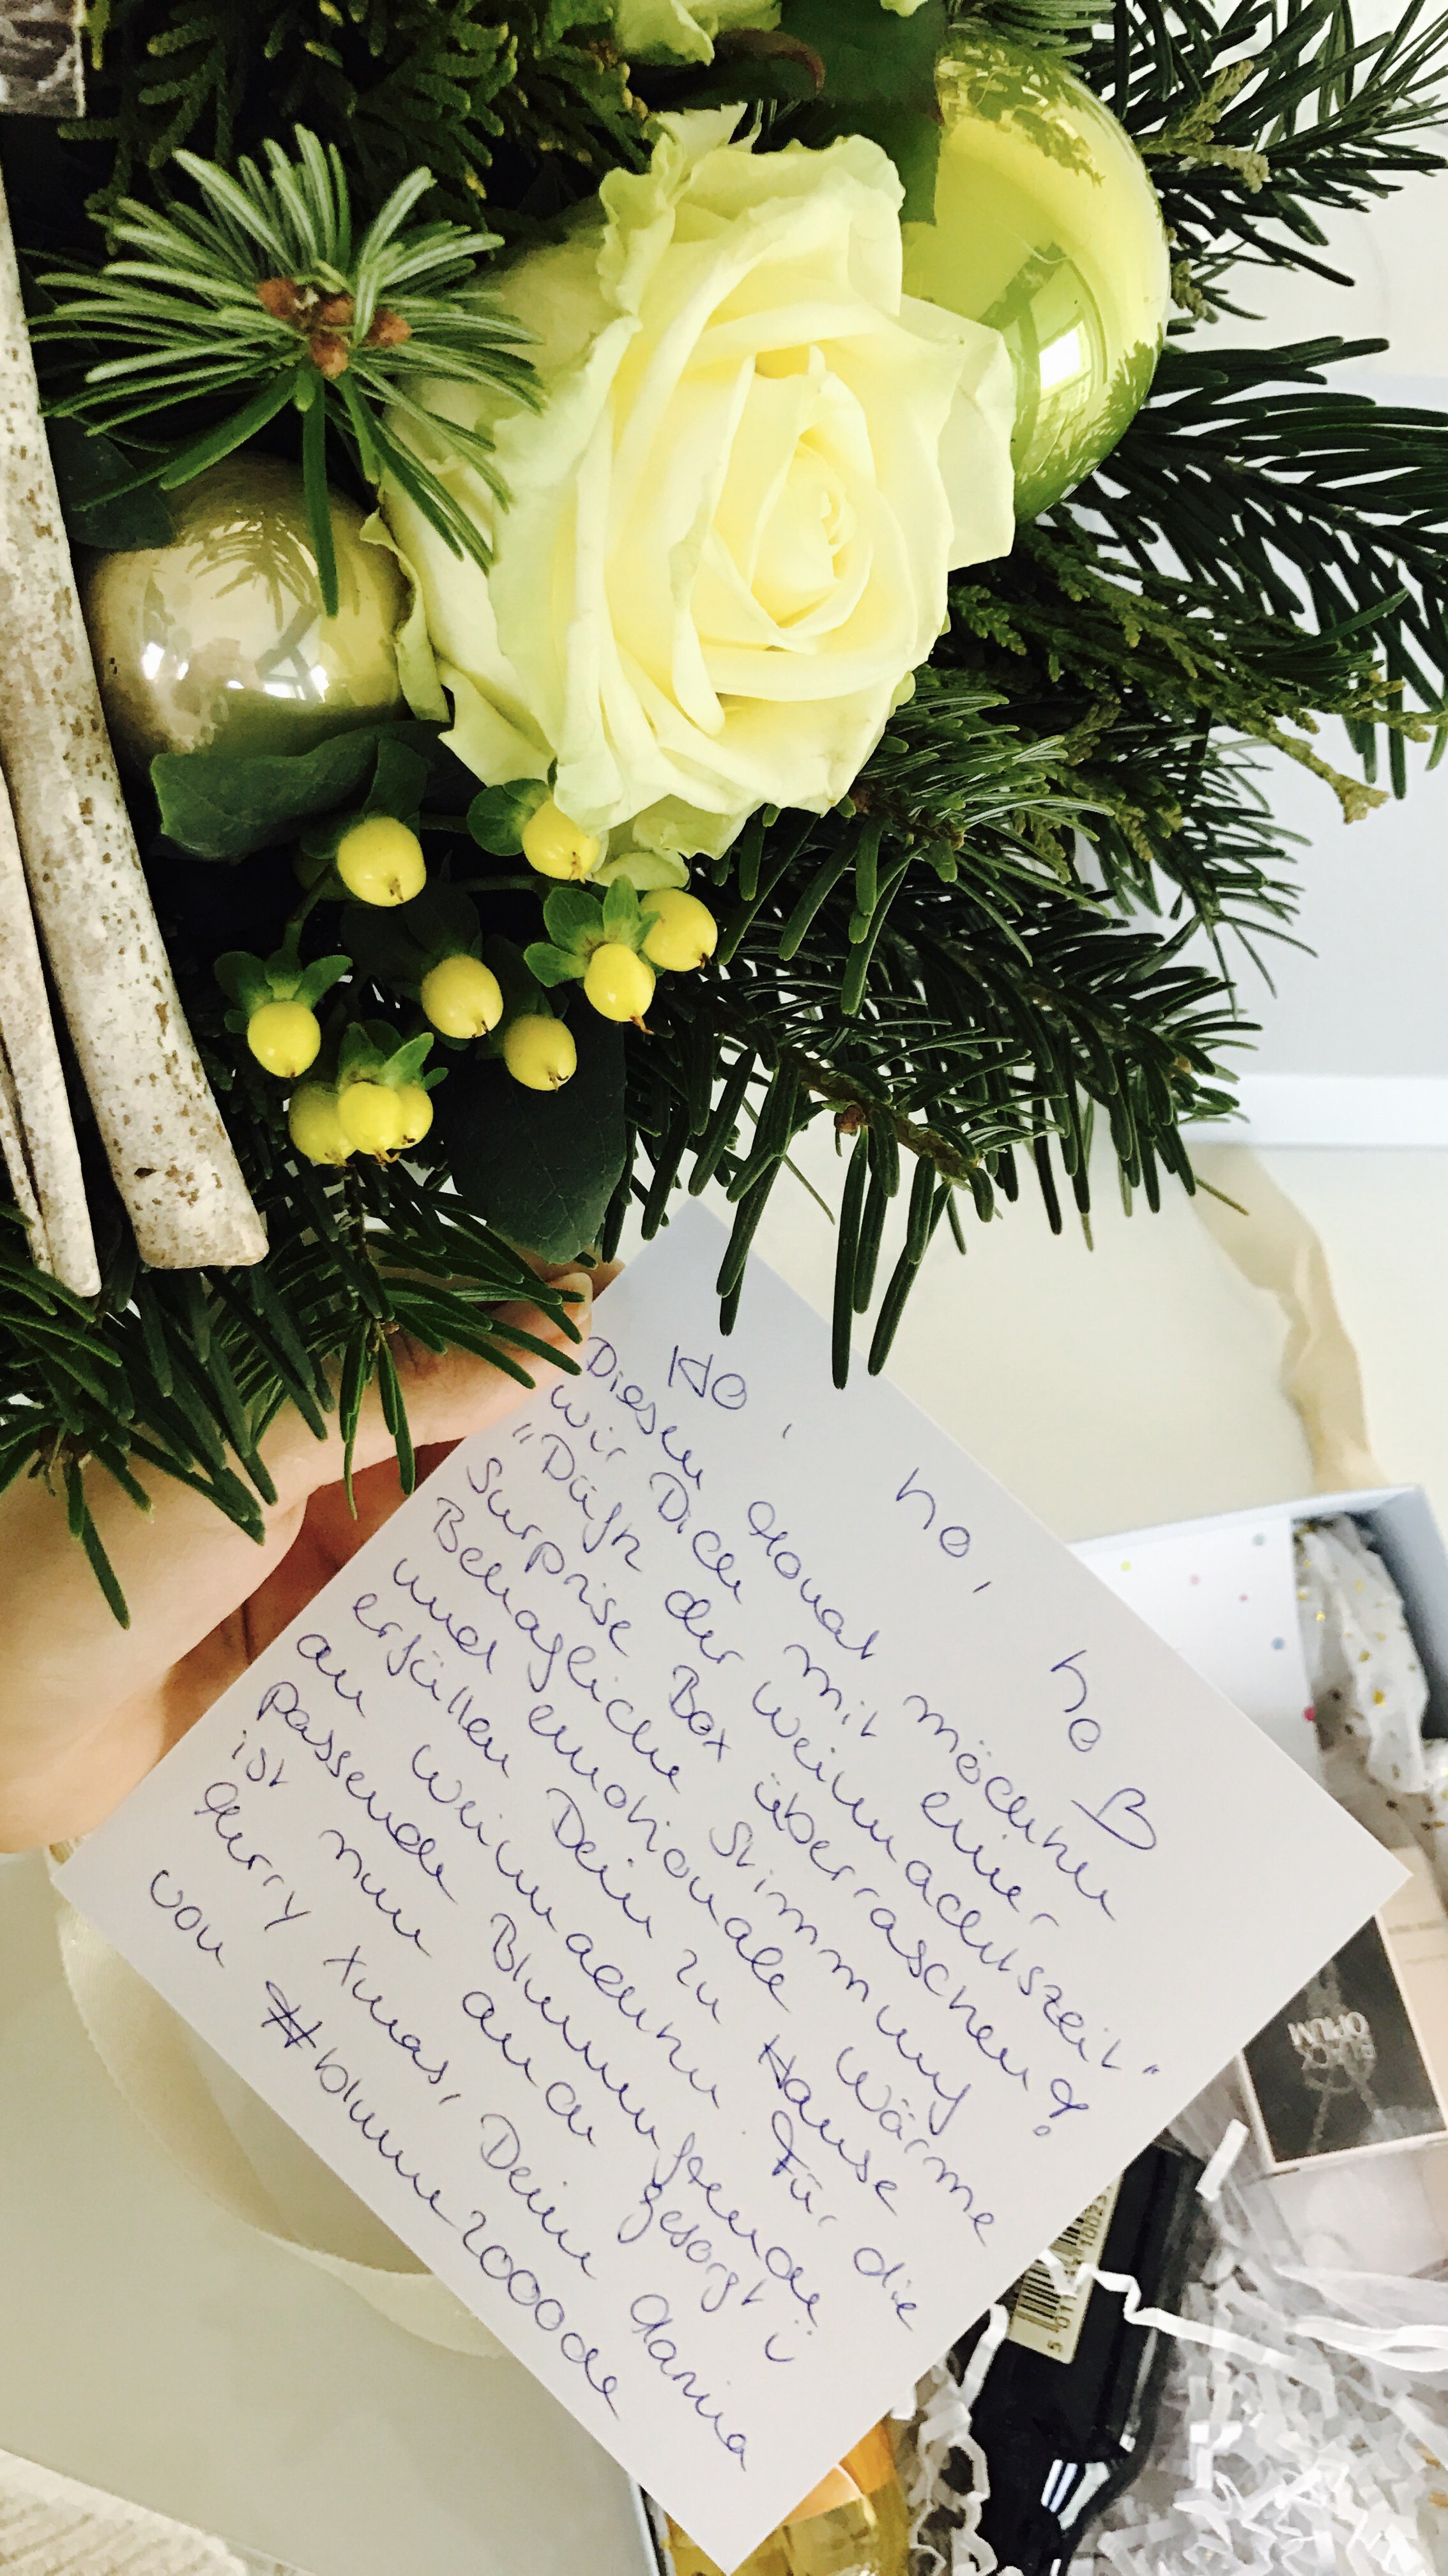 Ho, ho, ho
Diesen Monat möchten
wir Dich mit einer
"Duft der Weihnachtszeit"
Surprise Box überraschen!
Behagliche Stimmung
und emotionale Wärme
erfüllen Dein zu Hause
an Weihnachten. Für die
passende Blumenspende
ist nun auch gesorgt
Merry Xmas, Deine Marina
von #blume2000de
BLACK
OPIUM